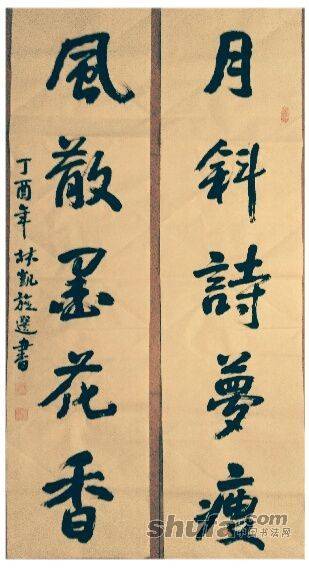 月斜詩夢瘦
風散墨花香
丁酉年林凱選書
shufa.com
中国书法网